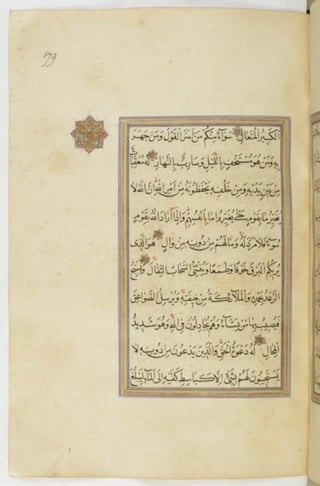 179
الْكَبِيرُ الْمُتَعَالِ سَوَاءٌ مِنْكُمْ مَنْ أَسَرَّ الْقَوْلَ وَمَنْ جَهَرَ
بِهِ وَمَنْ هُوَ مُسْتَخْفٍ بِاللَّيْلِ وَسَارِبٌ بِالنَّهَارِ لَهُ مُعَقِّبَاتٌ
مِنْ بَيْنِ يَدَيْهِ وَمِنْ خَلْفِهِ يَحْفَظُونَهُ مِنْ أَمْرِ اللَّهِ إِنَّ اللَّهَ لَا
يُغَيِّرُ مَا بِقَوْمٍ حَتَّى يُغَيِّرُوا مَا بِأَنْفُسِهِمْ وَإِذَا أَرَادَ اللَّهُ بِقَوْمٍ
سُوءًا فَلَا مَرَدَّ لَهُ وَمَا لَهُمْ مِنْ دُونِهِ مِنْ وَالٍ هُوَ الَّذِي
يُرِيكُمُ الْبَرْقَ خَوْفًا وَطَمَعًا وَيُنْشِئُ السَّحَابَ الثِّقَالَ وَيُسَبِّحُ
الرَّعْدُ بِحَمْدِهِ وَالْمَلَائِكَةُ مِنْ خِيفَتِهِ وَيُرْسِلُ الصَّوَاعِقَ
فَيُصِيبُ بِهَا مَنْ يَشَاءُ وَهُمْ يُجَادِلُونَ فِي اللَّهِ وَهُوَ شَدِيدُ
الْمِحَالِ لَهُ دَعْوَةُ الْحَقِّ وَالَّذِينَ يَدْعُونَ مِنْ دُونِهِ لَا
يَسْتَجِيبُونَ لَهُمْ بِشَيْءٍ إِلَّا كَبَاسِطِ كَفَّيْهِ إِلَى الْمَاءِ لِيَبْلُغَ